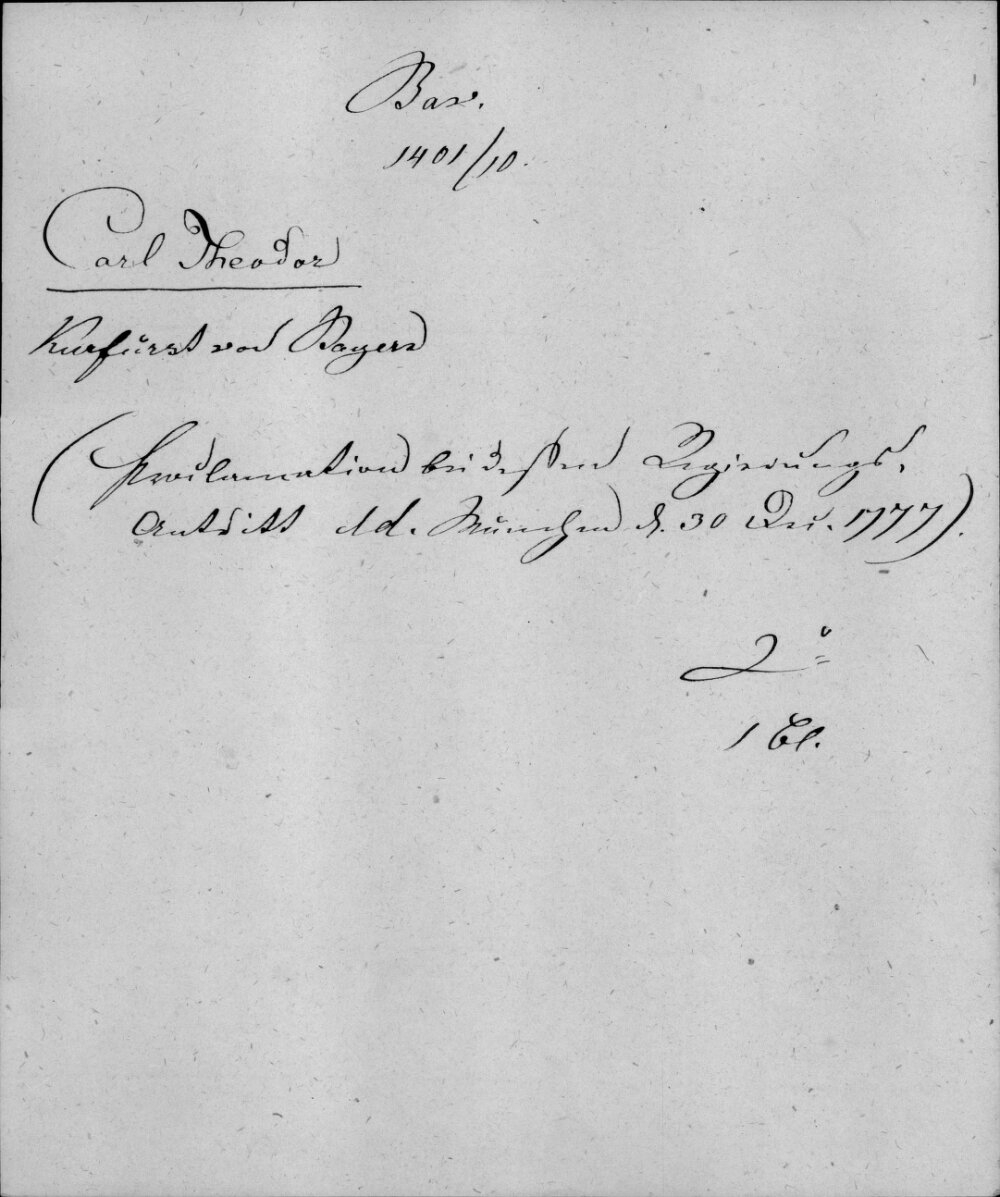 Bav.
1401/10.
Carl Theodor
Kurfürst von Bayern
(Proclamation bei dessen Regierungs-
Antritt dd. München d. 30 Dec. 1777).
2°
1 Bl.